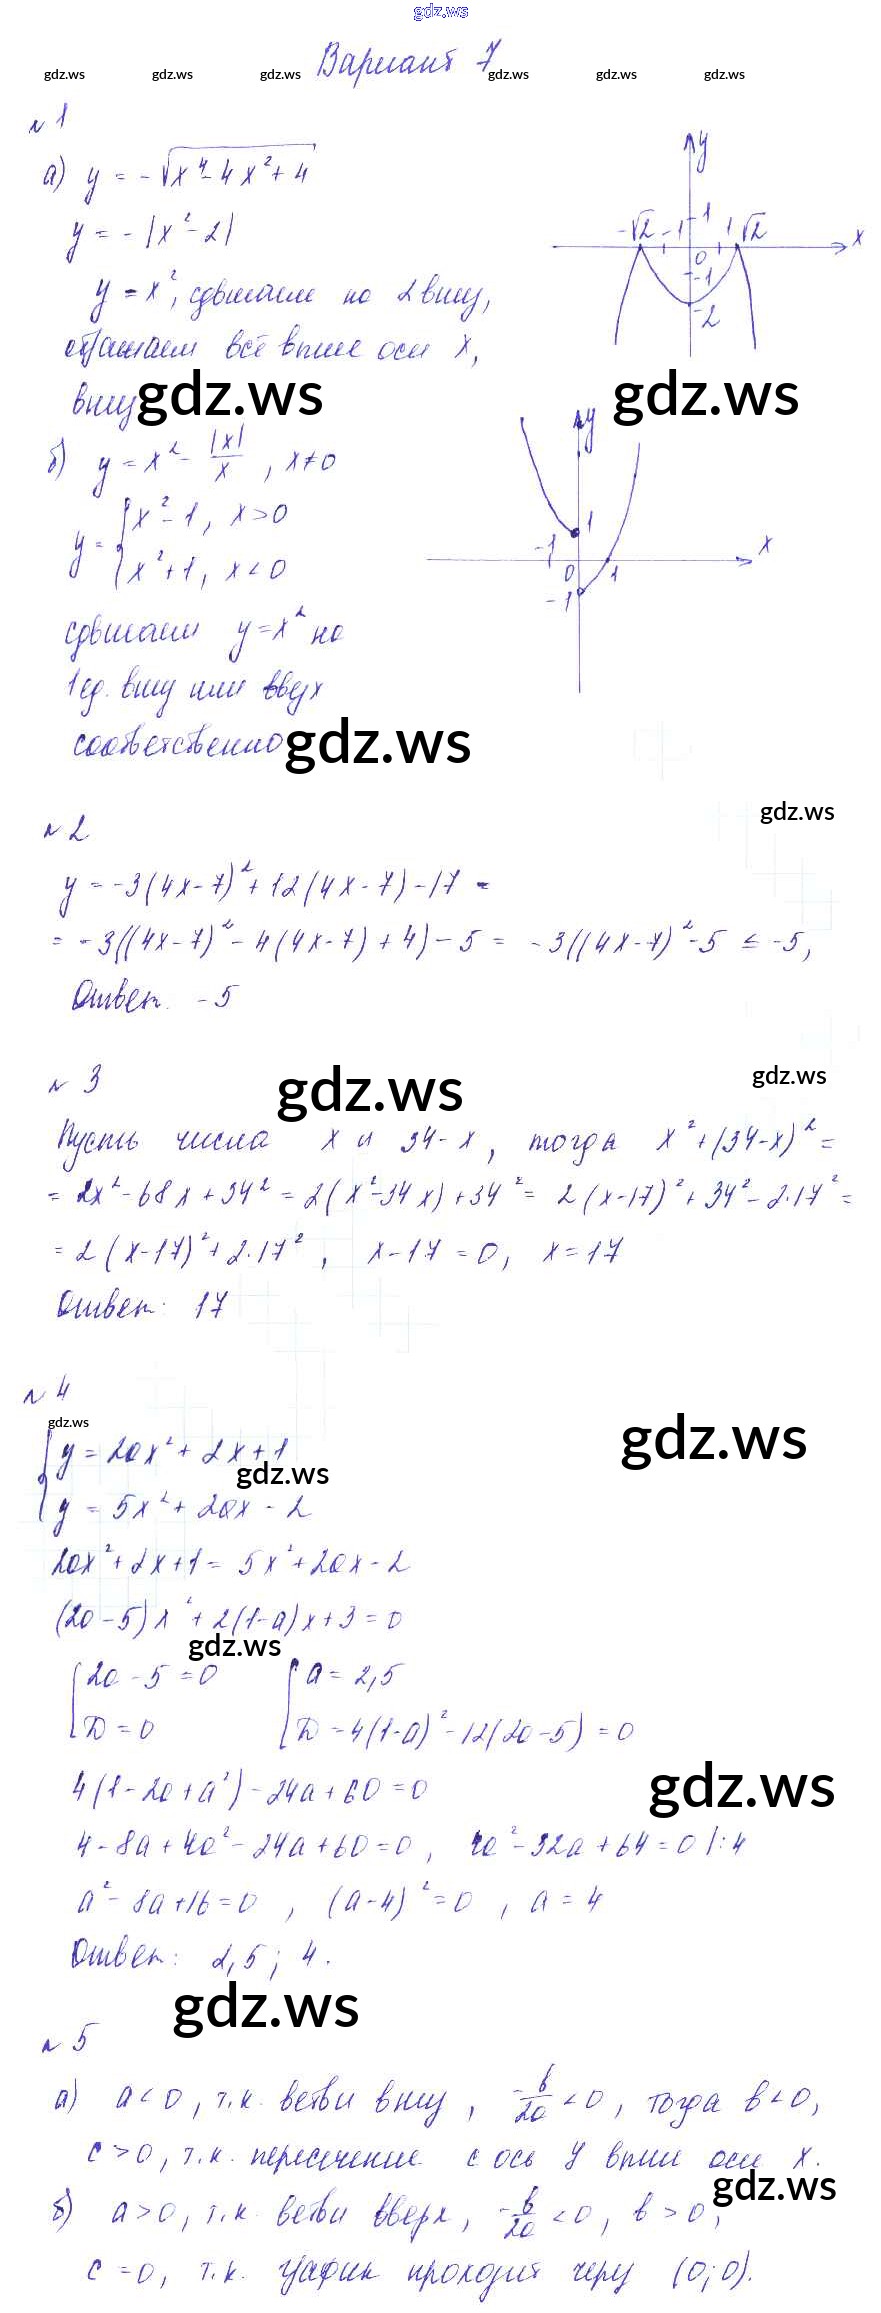 gdz.ws
Вариант 7
gdz.ws gdz.ws gdz.ws gdz.ws gdz.ws gdz.ws
№ 1
а) y = -√(x⁴ - 4x² + 4)
y = -|x² - 2|
y = x², сдвигаем на 2 вниз,
отражаем всё выше оси x,
вниз
gdz.ws gdz.ws
y
x
-√2 -1 0 1 √2
1
-1
-2
б) y = x² - |x|/x , x ≠ 0
y = { x² - 1, x > 0
x² + 1, x < 0
сдвигаем y = x² на
1 ед. вниз или вверх
соответственно
gdz.ws
y
x
1
-1 0 1
-1
gdz.ws
№ 2
y = -3(4x - 7)² + 12(4x - 7) - 17 =
= -3((4x - 7)² - 4(4x - 7) + 4) - 5 = -3((4x - 7)² - 5 ≤ -5,
Ответ. -5
№ 3
gdz.ws gdz.ws
Пусть числа x и 34 - x, тогда x² + (34 - x)² =
= 2x² - 68x + 34² = 2(x² - 34x) + 34² = 2(x - 17)² + 34² - 2·17² =
= 2(x - 17)² + 2·17², x - 17 = 0, x = 17
Ответ: 17
№ 4
gdz.ws gdz.ws
{ y = 2ax² + 2x + 1
y = 5x² + 2ax - 2
gdz.ws
2ax² + 2x + 1 = 5x² + 2ax - 2
(2a - 5)x² + 2(1 - a)x + 3 = 0
gdz.ws
[ 2a - 5 = 0 [ a = 2,5
D = 0 D = 4(1 - a)² - 12(2a - 5) = 0
4(1 - 2a + a²) - 24a + 60 = 0
gdz.ws
4 - 8a + 4a² - 24a + 60 = 0, 4a² - 32a + 64 = 0 |:4
a² - 8a + 16 = 0, (a - 4)² = 0, a = 4
Ответ: 2,5; 4.
gdz.ws
№ 5
а) a < 0, т.к. ветви вниз, -b/2a < 0, тогда b < 0,
c > 0, т.к. пересечение с ось y выше оси x.
gdz.ws
б) a > 0, т.к. ветви вверх, -b/2a < 0, b > 0,
c = 0, т.к. график проходит через (0; 0).